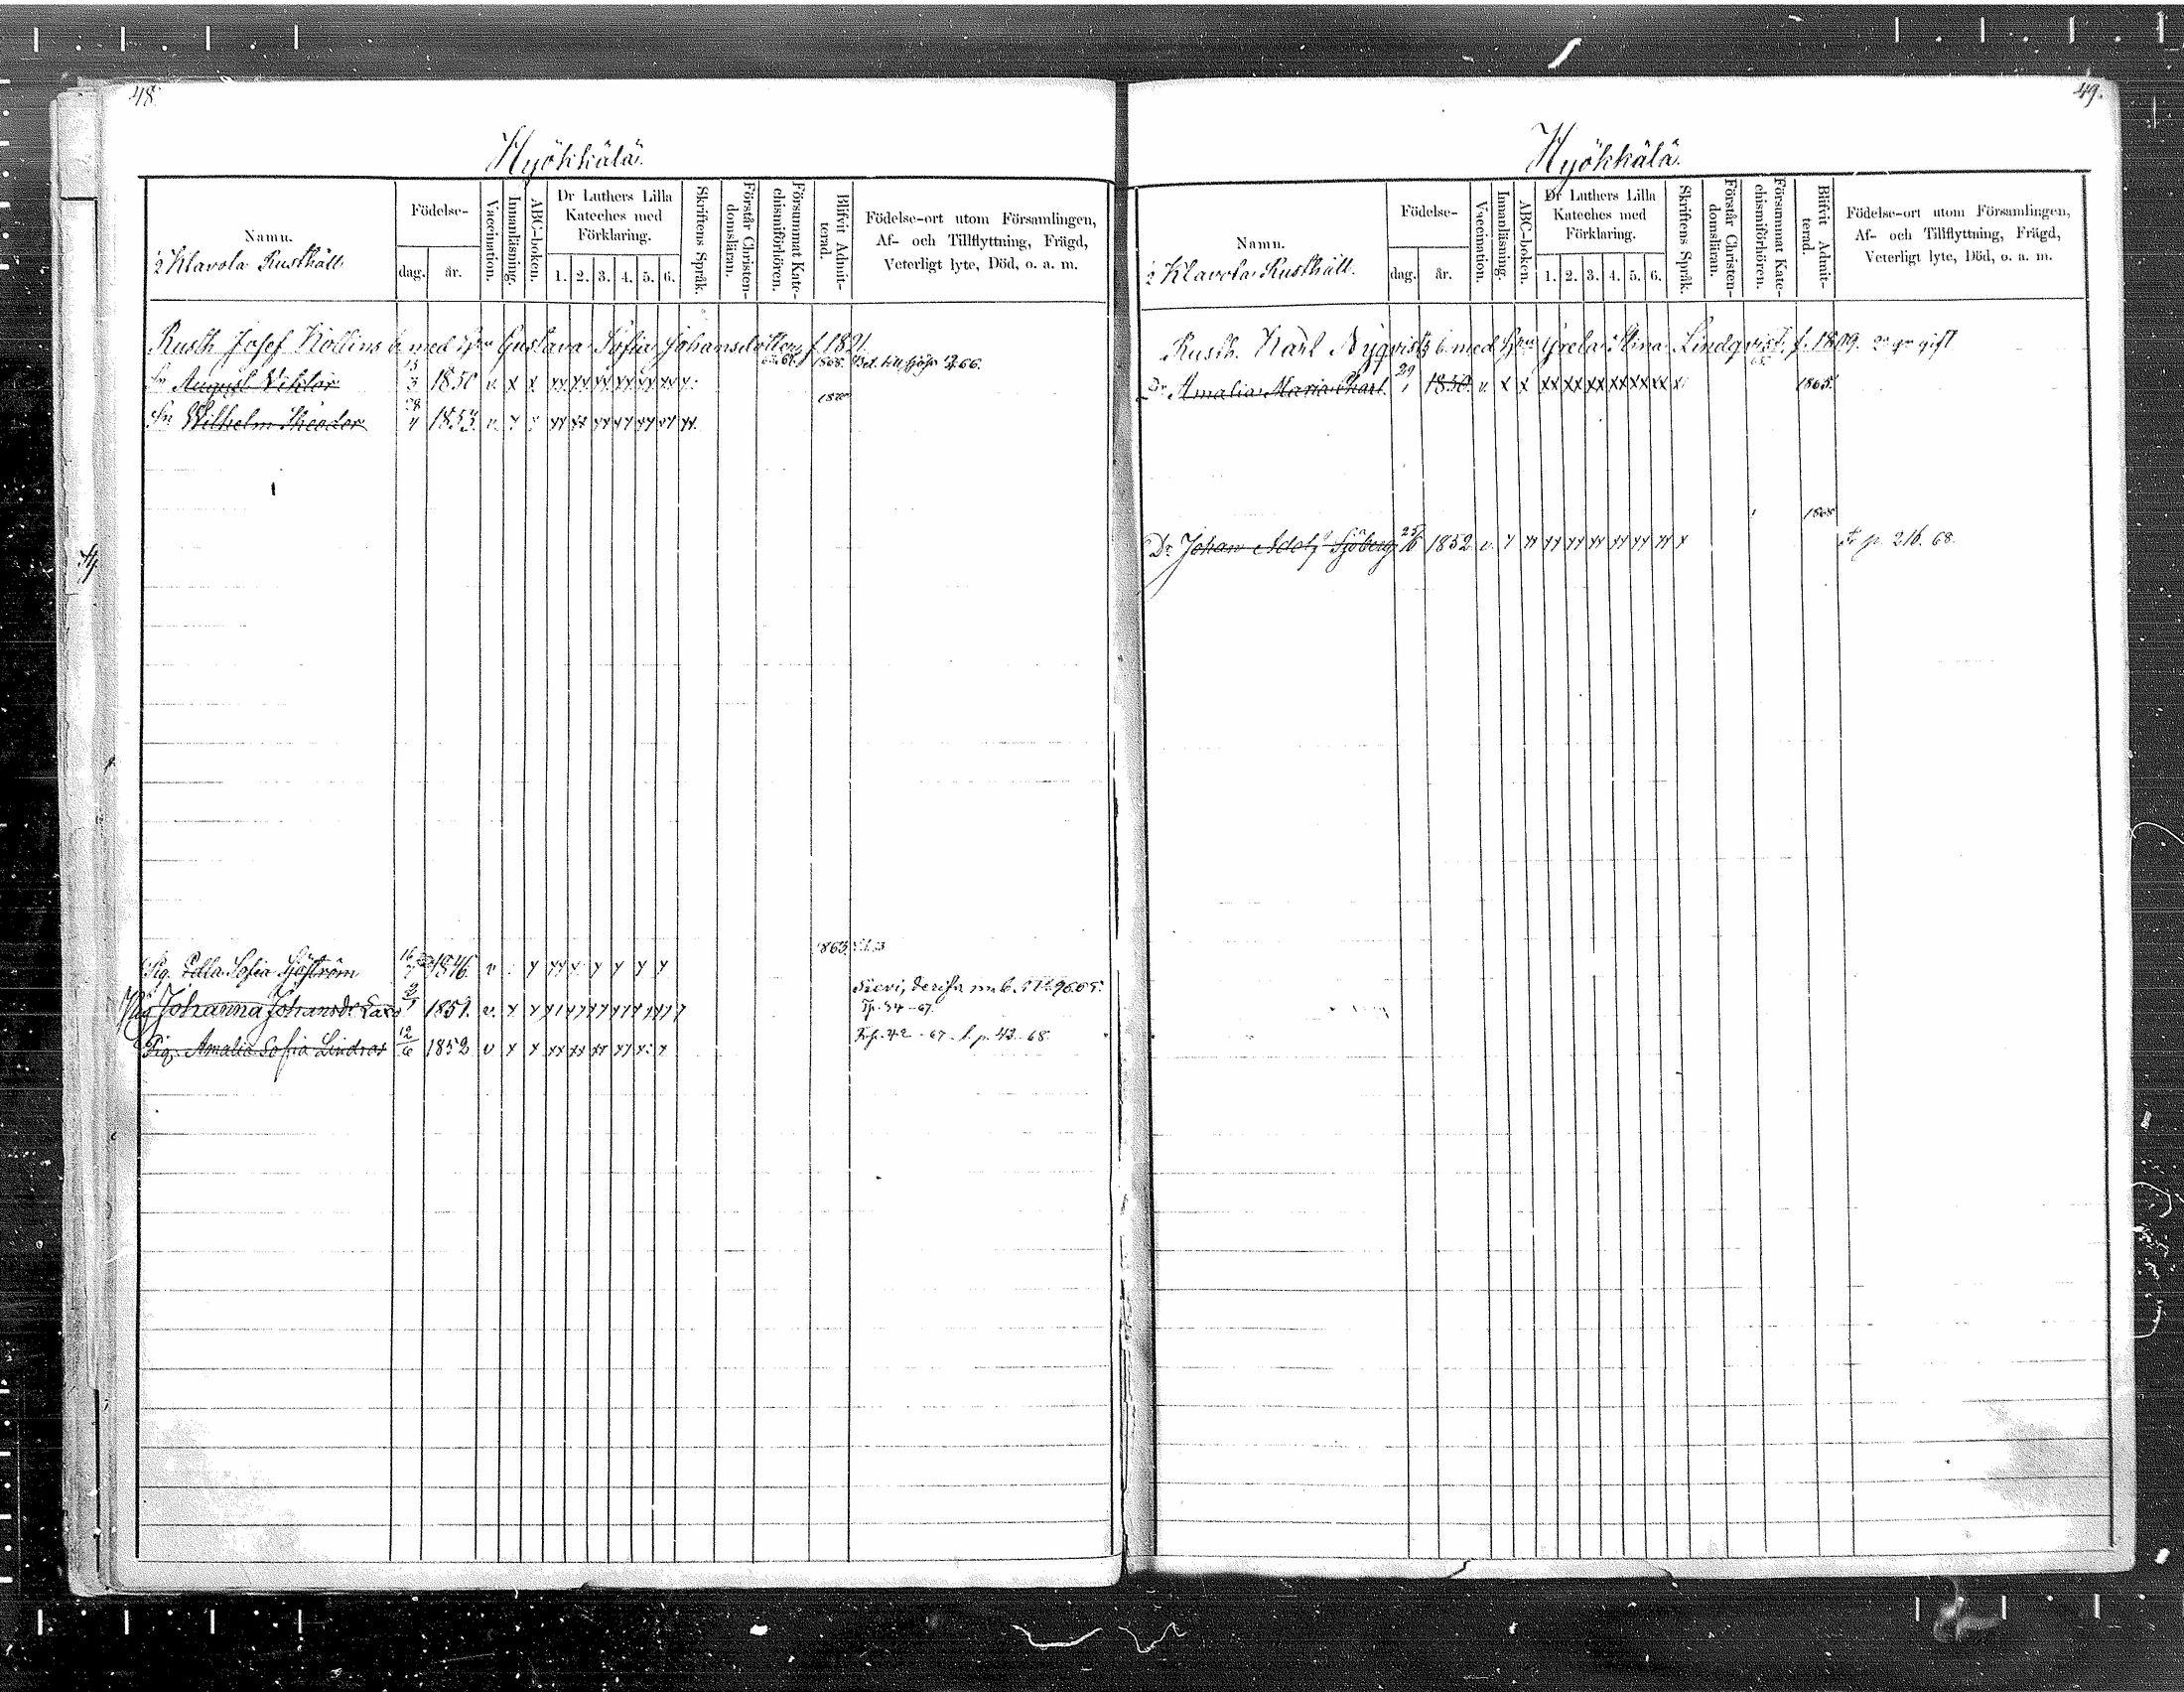 48.
Hyökkälä.
Namn.
½ Klavola Rusthåll
Födelse-
dag.
år.
Vaccination.
Innanläsning.
ABC-boken.
Dr Luthers Lilla
Kateches med
Förklaring.
1. 2. 3. 4. 5. 6.
Skriftens Språk.
Förstår Christen-
domsläran.
Försummat Kate-
chismiförhören.
Blifvit Admit-
terad.
Födelse-ort utom Församlingen,
Af- och Tillflyttning, Frägd,
Veterligt lyte, Död, o. a. m.
Rusth Josef Kollins b med Gustava Sofia Johansdotter f 1821.
Sn August Viktor 13/3 1850 v. x x xx xx xx xx xx xx x. 1868.
Sn Wilhelm Theodor 28/4 1853 v. 1870
Pig. Edla Sofia Sjöström 16/7 1846 v 1863.
Pig Johanna Johansdr 2/1 1851. v. Tp. 34 - 67.
Pig. Amalia Sofia Lindros 12/6 1852 v Fr p. 42 - 67. p. 43 - 68.
49.
Hyökkälä.
Namn.
½ Klavola Rusthåll.
Födelse-
dag.
år.
Vaccination.
Innanläsning.
ABC-boken.
Dr Luthers Lilla
Kateches med
Förklaring.
1. 2. 3. 4. 5. 6.
Skriftens Språk.
Förstår Christen-
domsläran.
Försummat Kate-
chismiförhören.
Blifvit Admit-
terad.
Födelse-ort utom Församlingen,
Af- och Tillflyttning, Frägd,
Veterligt lyte, Död, o. a. m.
Rusth. Karl Nyqvists b med Greta Stina Lindqvist. f. 1809. gift
Dr Amalia Maria Charl. 29/1 1850. v. x x xx xx xx xx xx xx x 1865.
Dr. Johan Adolf Sjöberg 25/6 1852 v. 1868 Fr p. 216. 68.